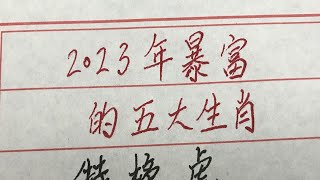 2023年暴富
的五大生肖